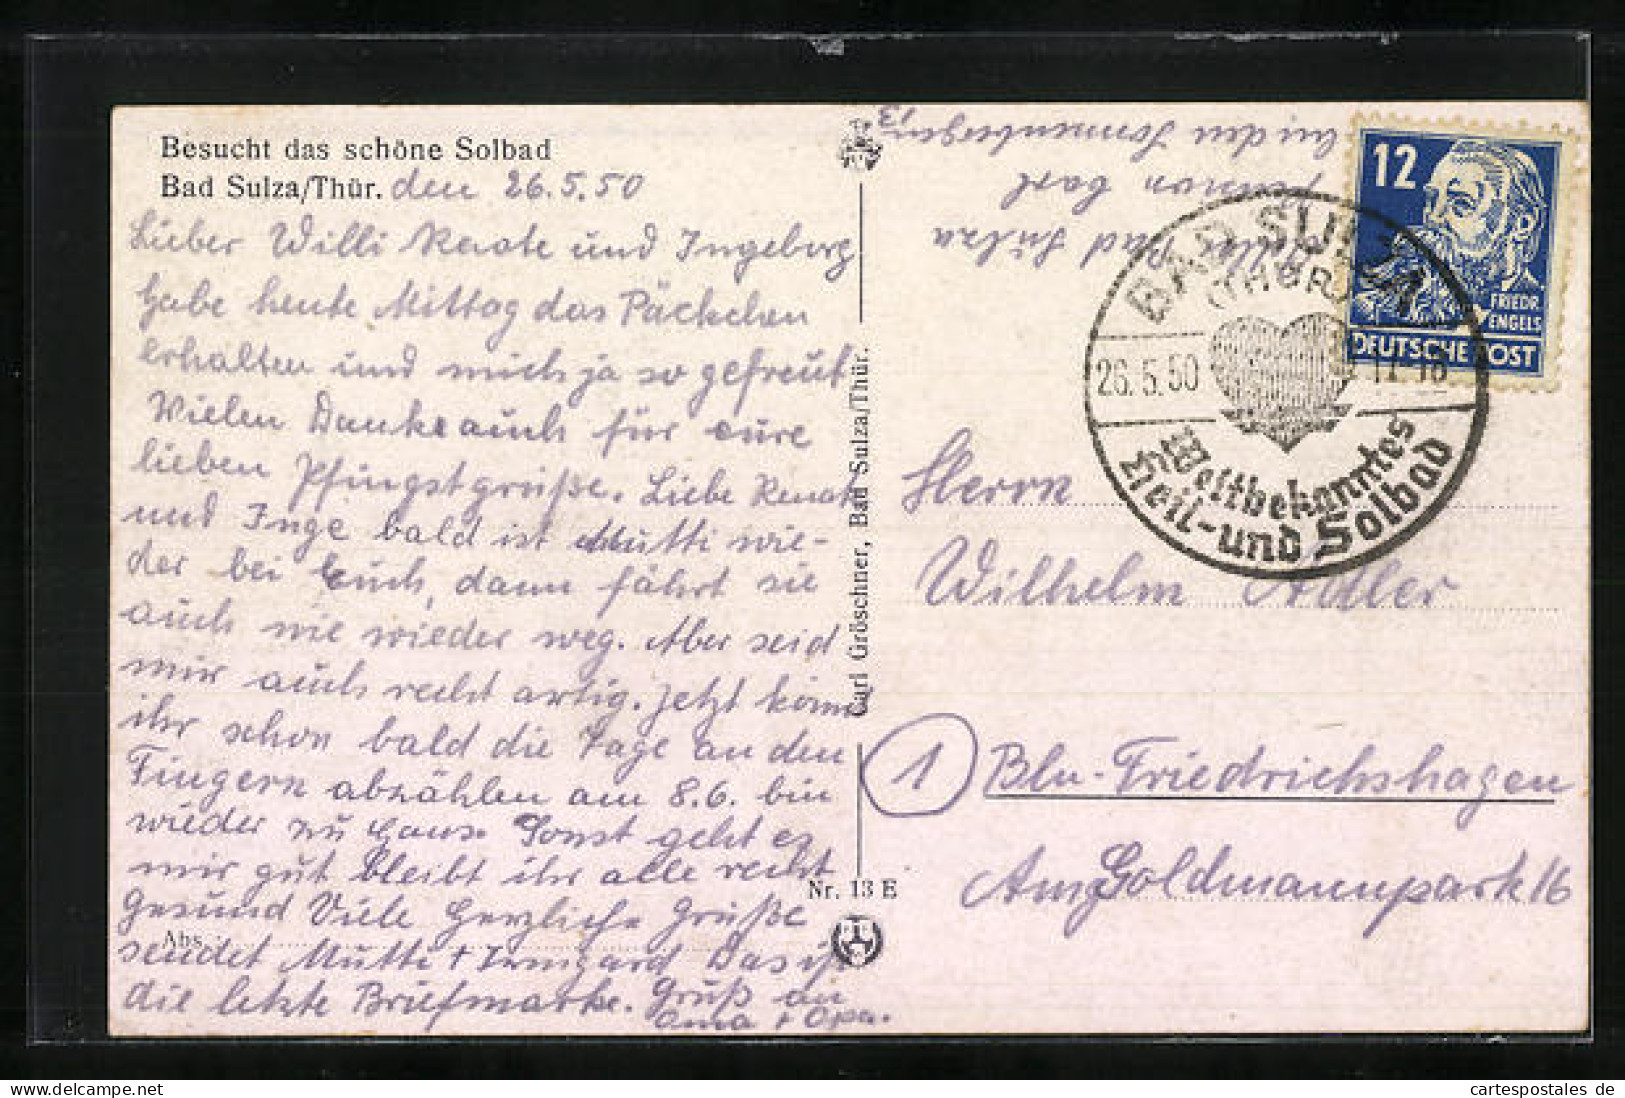 Besucht das schöne Solbad
Bad Sulza/Thür. den 26.5.50
Lieber Willi Renate und Ingeborg
Habe heute Mittag das Päckchen
erhalten und mich ja so gefreut
Vielen Dank auch für eure
lieben Pfingstgrüße. Liebe Renate
und Inge bald ist Mutti wie-
der bei Euch, dann fährt sie
auch nie wieder weg. Aber seid
mir auch recht artig. Jetzt könnt
ihr schon bald die Tage an den
Fingern abzählen am 8.6. bin
wieder zu Haus. Sonst geht es
mir gut bleibt ihr alle recht
Gesund Viele Herzliche Grüße
Abs.
sendet Mutti + Irmgard Das ist
die letzte Briefmarke. Gruß an
Oma + Opa.
Carl Gröschner, Bad Sulza/Thür.
Nr. 13 E
Adler Bad Sulza
Pension Carl
An den Sonnenbergen 13
12
FRIEDR
ENGELS
DEUTSCHE POST
BAD SULZA
(THÜR)
26.5.50
Weltbekanntes
Heil- und Solbad
Herrn
Wilhelm Adler
1 Bln-Friedrichshagen
Am Goldmannpark 16
cartespostales de